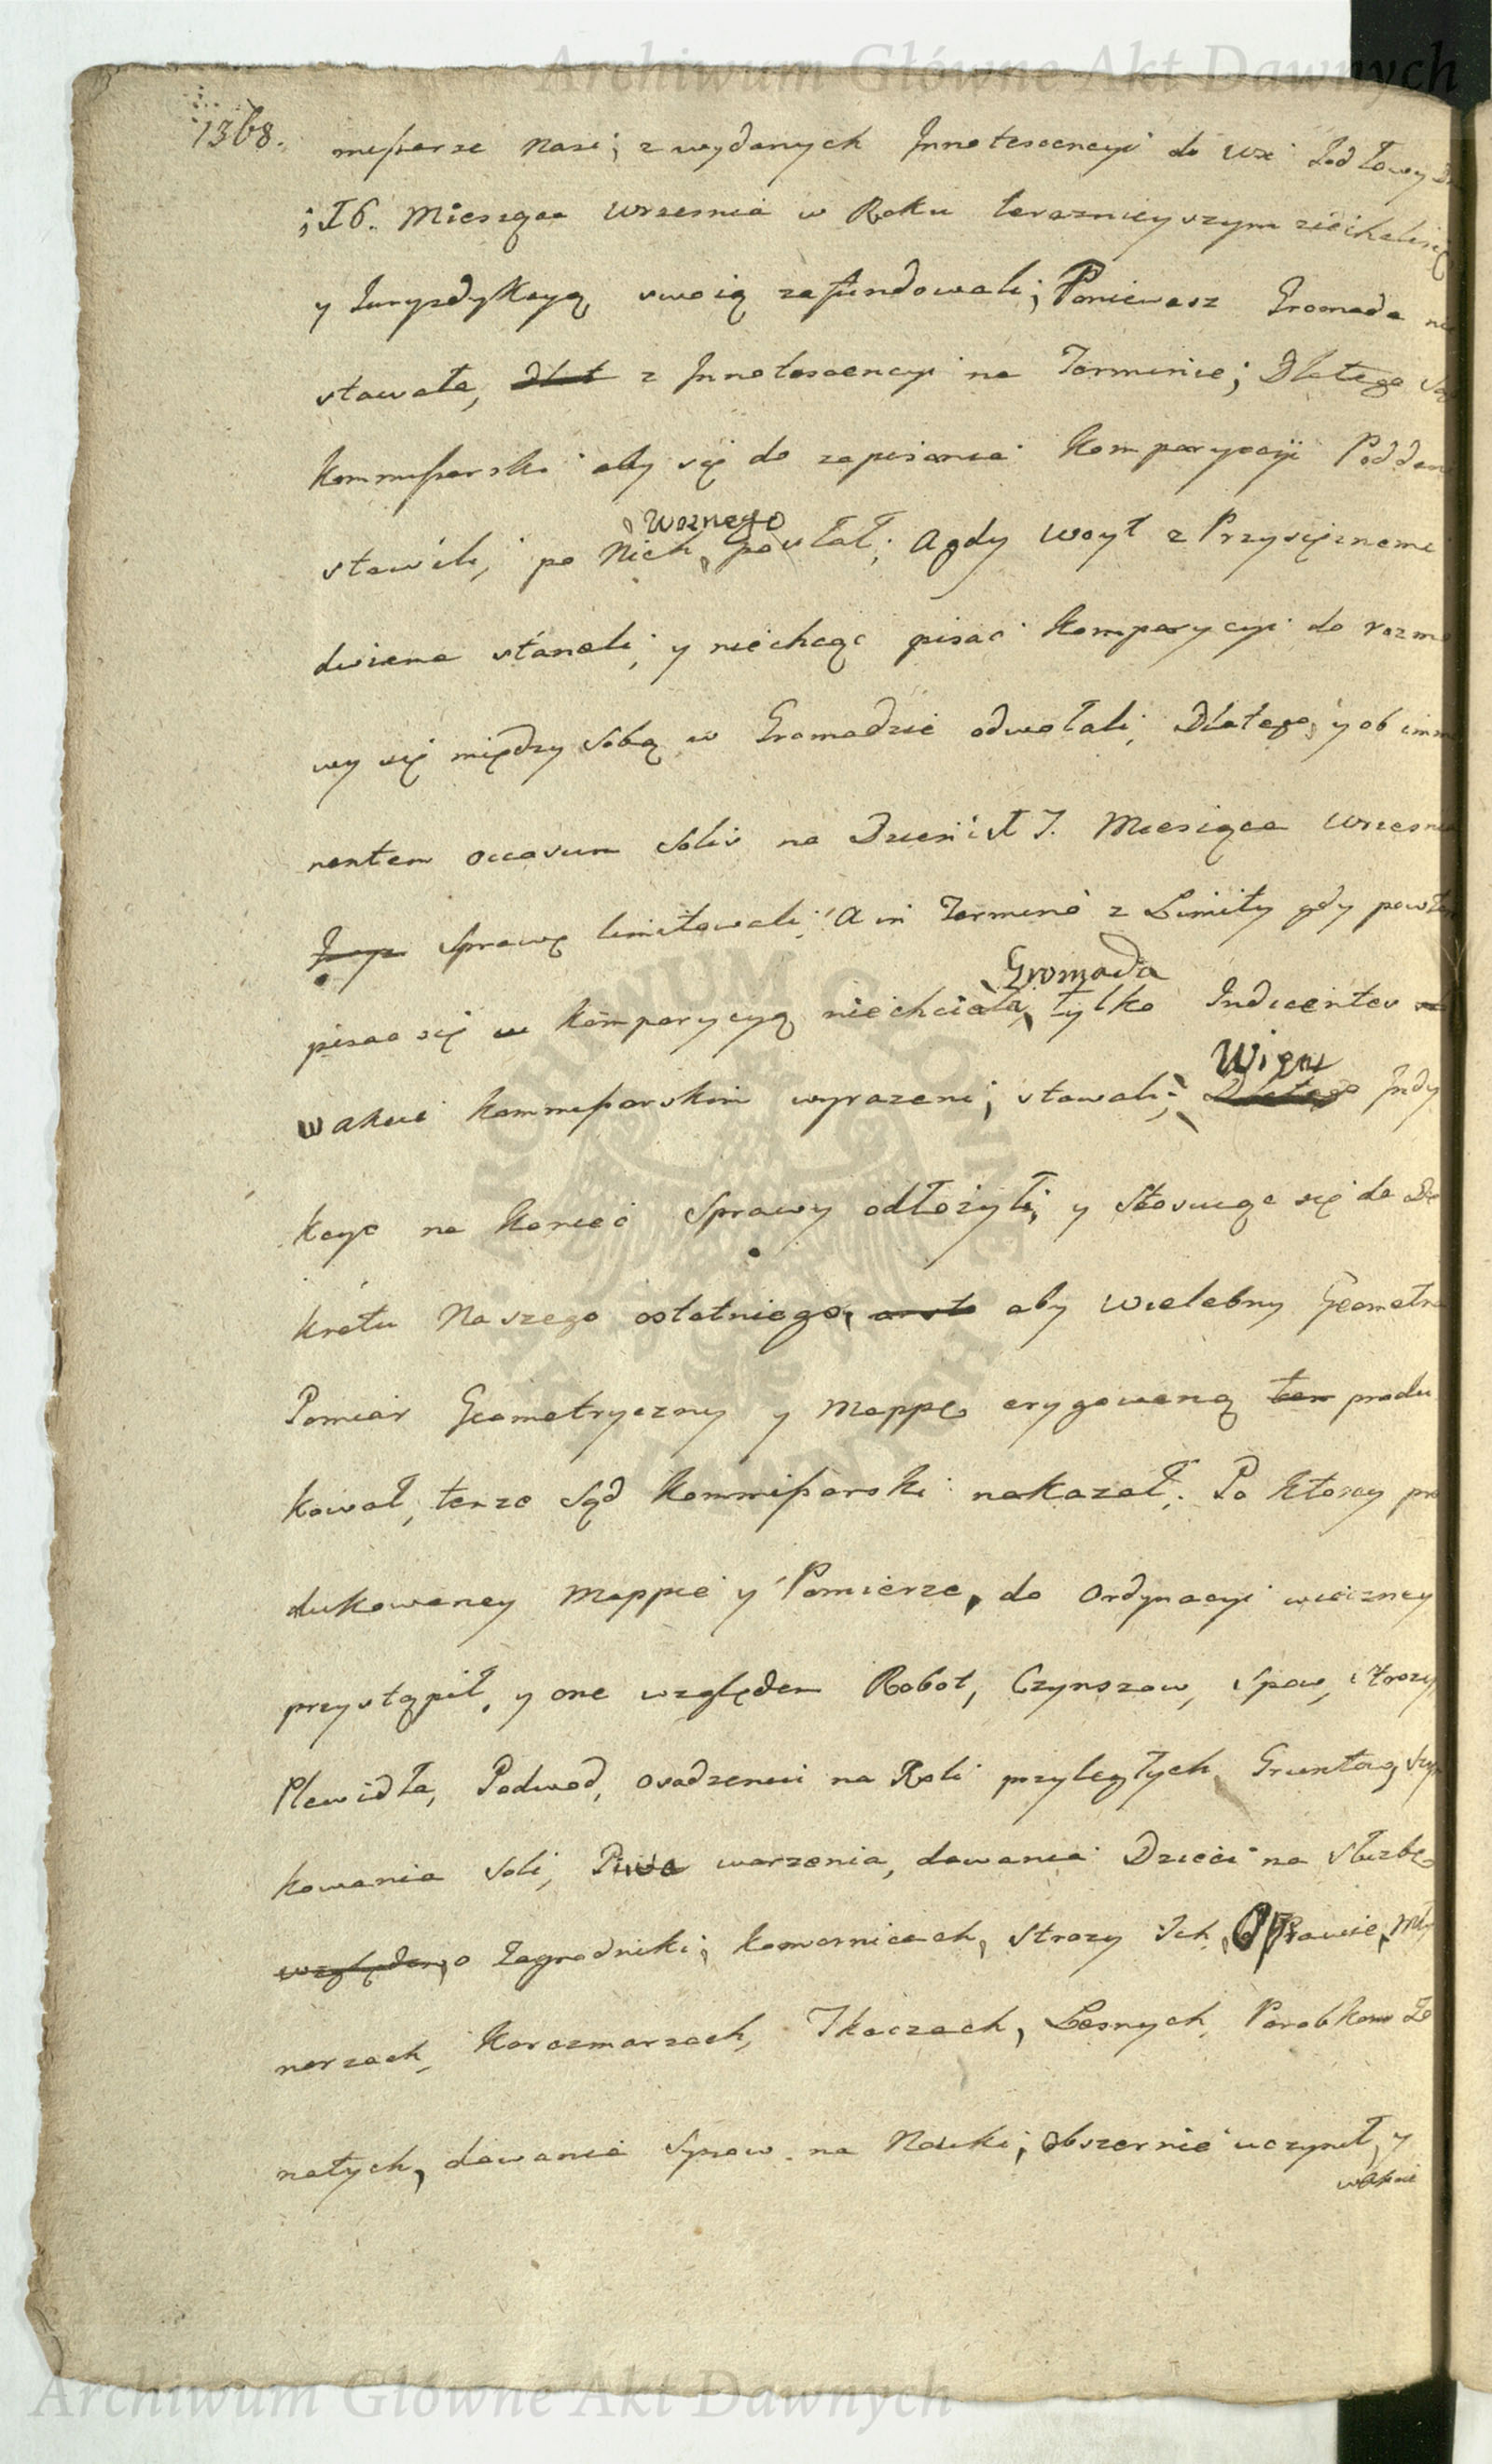 Archiwum Główne Akt Dawnych
1368.
mißarze nasi; z wydanych Innotescencyi do wsi Jodłowy
16. Miesiąca Wrzesnia w Roku teraznieyszym ziechali się
y Juryzdykcyą swoią zafundowali; Poniewasz Gromada nie
stawała, z Innotescencyi na Terminie; Dlatego Sąd
Kommißarski aby się do zapisania Komparycyi Poddani
Woznego
stawili, po Nich posłał; A gdy Woyt z Przysięznemi
dwiema stanęli, y niechcąc pisać Komparycyi do rozmo
wy się między sobą w Gromadzie odwołali, Dlatego, y ob immi
nentem occasum Solis na Dzien 17. Miesiąca Wrzesnia
Sprawę limitowali; A in Termino z Limity gdy powtor
Gromada
pisac się w Komparycyą niechciała, tylko Inducentes
Więc
w akcie Kommißarskim wyrazeni, stawali; Dlatego Indy
kcye na Koniec Sprawy odłożyli, y Stosuiąc się do De
kretu Naszego ostatniego, aby Wielebny Geometra
Pomiar Geometryczny y Mappę erygowaną ten produ
kował, tenze Sąd Kommißarski nakazał. Po ktorey pro
dukowaney Mappie y Pomierze, do Ordynacyi wieczney
przystąpił, y one względem Robot, Czynszow, Spow, Strozy
Plewidła, Podwod, osadzeniu na Roli przyległych Gruntow, Szyn
kowania Soli, Piwa warzenia, dawania Dzieci na Służbę
względem, o Zagrodniki, Komornicach, Strozy Ich, Oprawie, Mły
narzach, Karczmarzach, Tkaczach, Lesnych, Parobkow Zo
natych, dawania Synow na Nauki; obszernie uczynił, y
w akcie
Archiwum Główne Akt Dawnych